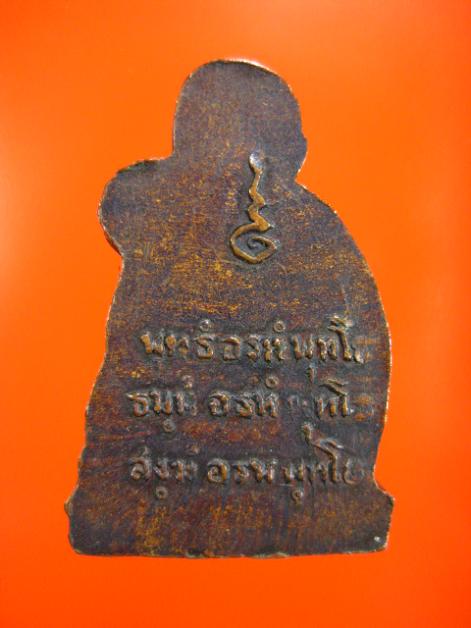 พุทธํ อรหํ พุทโธ
ธมฺมํ อรหํ พุทโธ
สงฺฆํ อรหํ พุทโธ